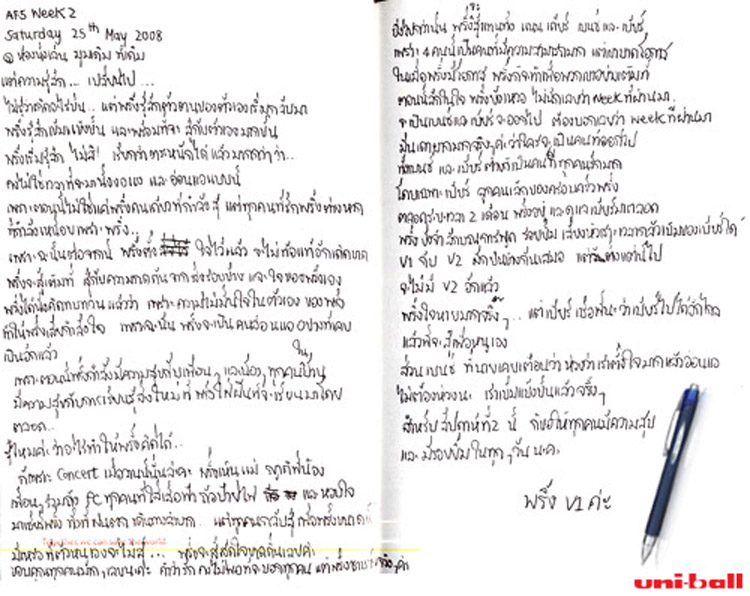 AF5 Week 2
Saturday 25th May 2008
@ ห้องนั่งเล่น มุมเดิม ที่เดิม
แต่ความรู้สึก... เปลี่ยนไป...
ไม่รู้ว่าเกิดอะไรขึ้น.. แต่พริ้งรู้สึกตัวตนของตัวเองเริ่มกลับมา
พริ้งรู้สึกเข้มแข็งขึ้น และพร้อมที่จะ สู้กับตัวเองมากขึ้น
พริ้งเริ่มรู้สึก ไม่สิ! เรียกว่าตระหนักได้ แล้วมากกว่า ว่า...
คงไม่ใช่เวลาที่จะมานั่งงอแง และอ่อนแอแบบนี้
เพราะตอนนี้ไม่ใช่แค่พริ้งคนเดียวที่กำลังสู้ แต่ทุกคนที่รักพริ้งต่างหาก
ที่กำลังเหนื่อยเพราะพริ้ง...
เพราะฉะนั้นต่อจากนี้ พริ้งตั้ง ใจไว้แล้ว จะไม่ท้อแท้อีกเด็ดขาด
พริ้งจะสู้เต็มที่ สู้กับความกดดันจากสิ่งรอบข้าง และใจของพริ้งเอง
พริ้งได้นั่งคิดทบทวนแล้วว่า เพราะความไม่มั่นใจในตัวเอง ของพริ้ง
ทำให้พริ้งเสียกำลังใจ เพราะฉะนั้น พริ้งจะไม่เป็นคนอ่อนแอ อย่างที่เคย
เป็นอีกแล้ว
เพราะตอนนี้พริ้งกำลังมีความสุขกับเพื่อนๆ และน้องๆ ทุกคนในบ้าน
มีความสุขกับการเรียนรู้สิ่งใหม่ๆ ที่ พริ้งใฝ่ฝันที่จะเรียนมาโดย
ตลอด..
รู้ไหมคะว่าอะไรทำให้พริ้งคิดได้..
ก็เพราะ Concert เมื่อวานนี้นั่นล่ะค่ะ พริ้งเห็นแม่ ญาติพี่น้อง
เพื่อนๆ รวมถึง FC ทุกคนที่ใส่เสื้อดำ ถือป้ายไฟ และ หอบใจ
มาเชียร์พริ้ง ทั้งที่ฝนตก เดินทางลำบาก.. แต่ทุกคน
Together we can save the world.
มีเหรอที่ตัวหนูเองจะไม่สู้... พริ้งจะสู้สุดใจขาดดิ้นเลยค่ะ
ขอบคุณทุกคนมากๆเลยนะคะ คำว่ารัก คงไม่พอที่จะบอกทุกคน แต่พริ้ง
ยิ่งไปกว่านั้น พริ้งจะสู้แทนทั้ง แนน เคียร์ เบนซ์ และ เบียร์
เพราะ 4 คนนี้เป็นคนที่มีความสามารถมาก แต่เขาขาดโอกาส
ในเมื่อพริ้งมีโอกาส พริ้งก็จะทำเพื่อพวกเขาอย่างเต็มที่
ตอนนี้ลึกๆในใจ พริ้งยังเหวอ ไม่นึกเลยว่า week ที่ผ่านมา
จะเป็นเบนซ์และเบียร์ จะออกไป ต้องบอกเลยว่า week ที่ผ่านมา
มันเดายากมากจริงๆค่ะว่าใครจะเป็นคนที่ออกไป
ทั้งเบนซ์ และเบียร์ ต่างก็เป็นคนที่ทุกคนรักมาก
โดยเฉพาะเบียร์ ลูกคนเล็กของครอบครัวพริ้ง
ตลอดระยะเวลา 2 เดือน พริ้งอยู่ และดูแลเบียร์มาตลอด
พริ้งยังจำลักษณะการพูด รอยยิ้ม เสียงหัวเราะ
V1 กับ V2 มักเป็นของคู่กันเสมอ แต่วันต่างแต่นี้ไป
จะไม่มี V2 อีกแล้ว
พริ้งใจหายมากจริงๆ... แต่เบียร์ เชื่อพี่นะ ว่าเบียร์ไปได้อีกไกล
แล้วพี่จะสู้เพื่อหนูเอง
ส่วนเบนซ์ ที่นายเคยเตือนว่า ห่วงว่าเราตั้งใจมากแล้วอ่อนแอ
ไม่ต้องห่วงนะ เราเข้มแข็งขึ้นแล้วจริงๆ
สำหรับ สัปดาห์ที่ 2 นี้ ก็ขอให้ทุกคนมีความสุข
และ มีรอยยิ้มในทุกๆวัน นะคะ
พริ้ง V1 ค่ะ
uni-ball